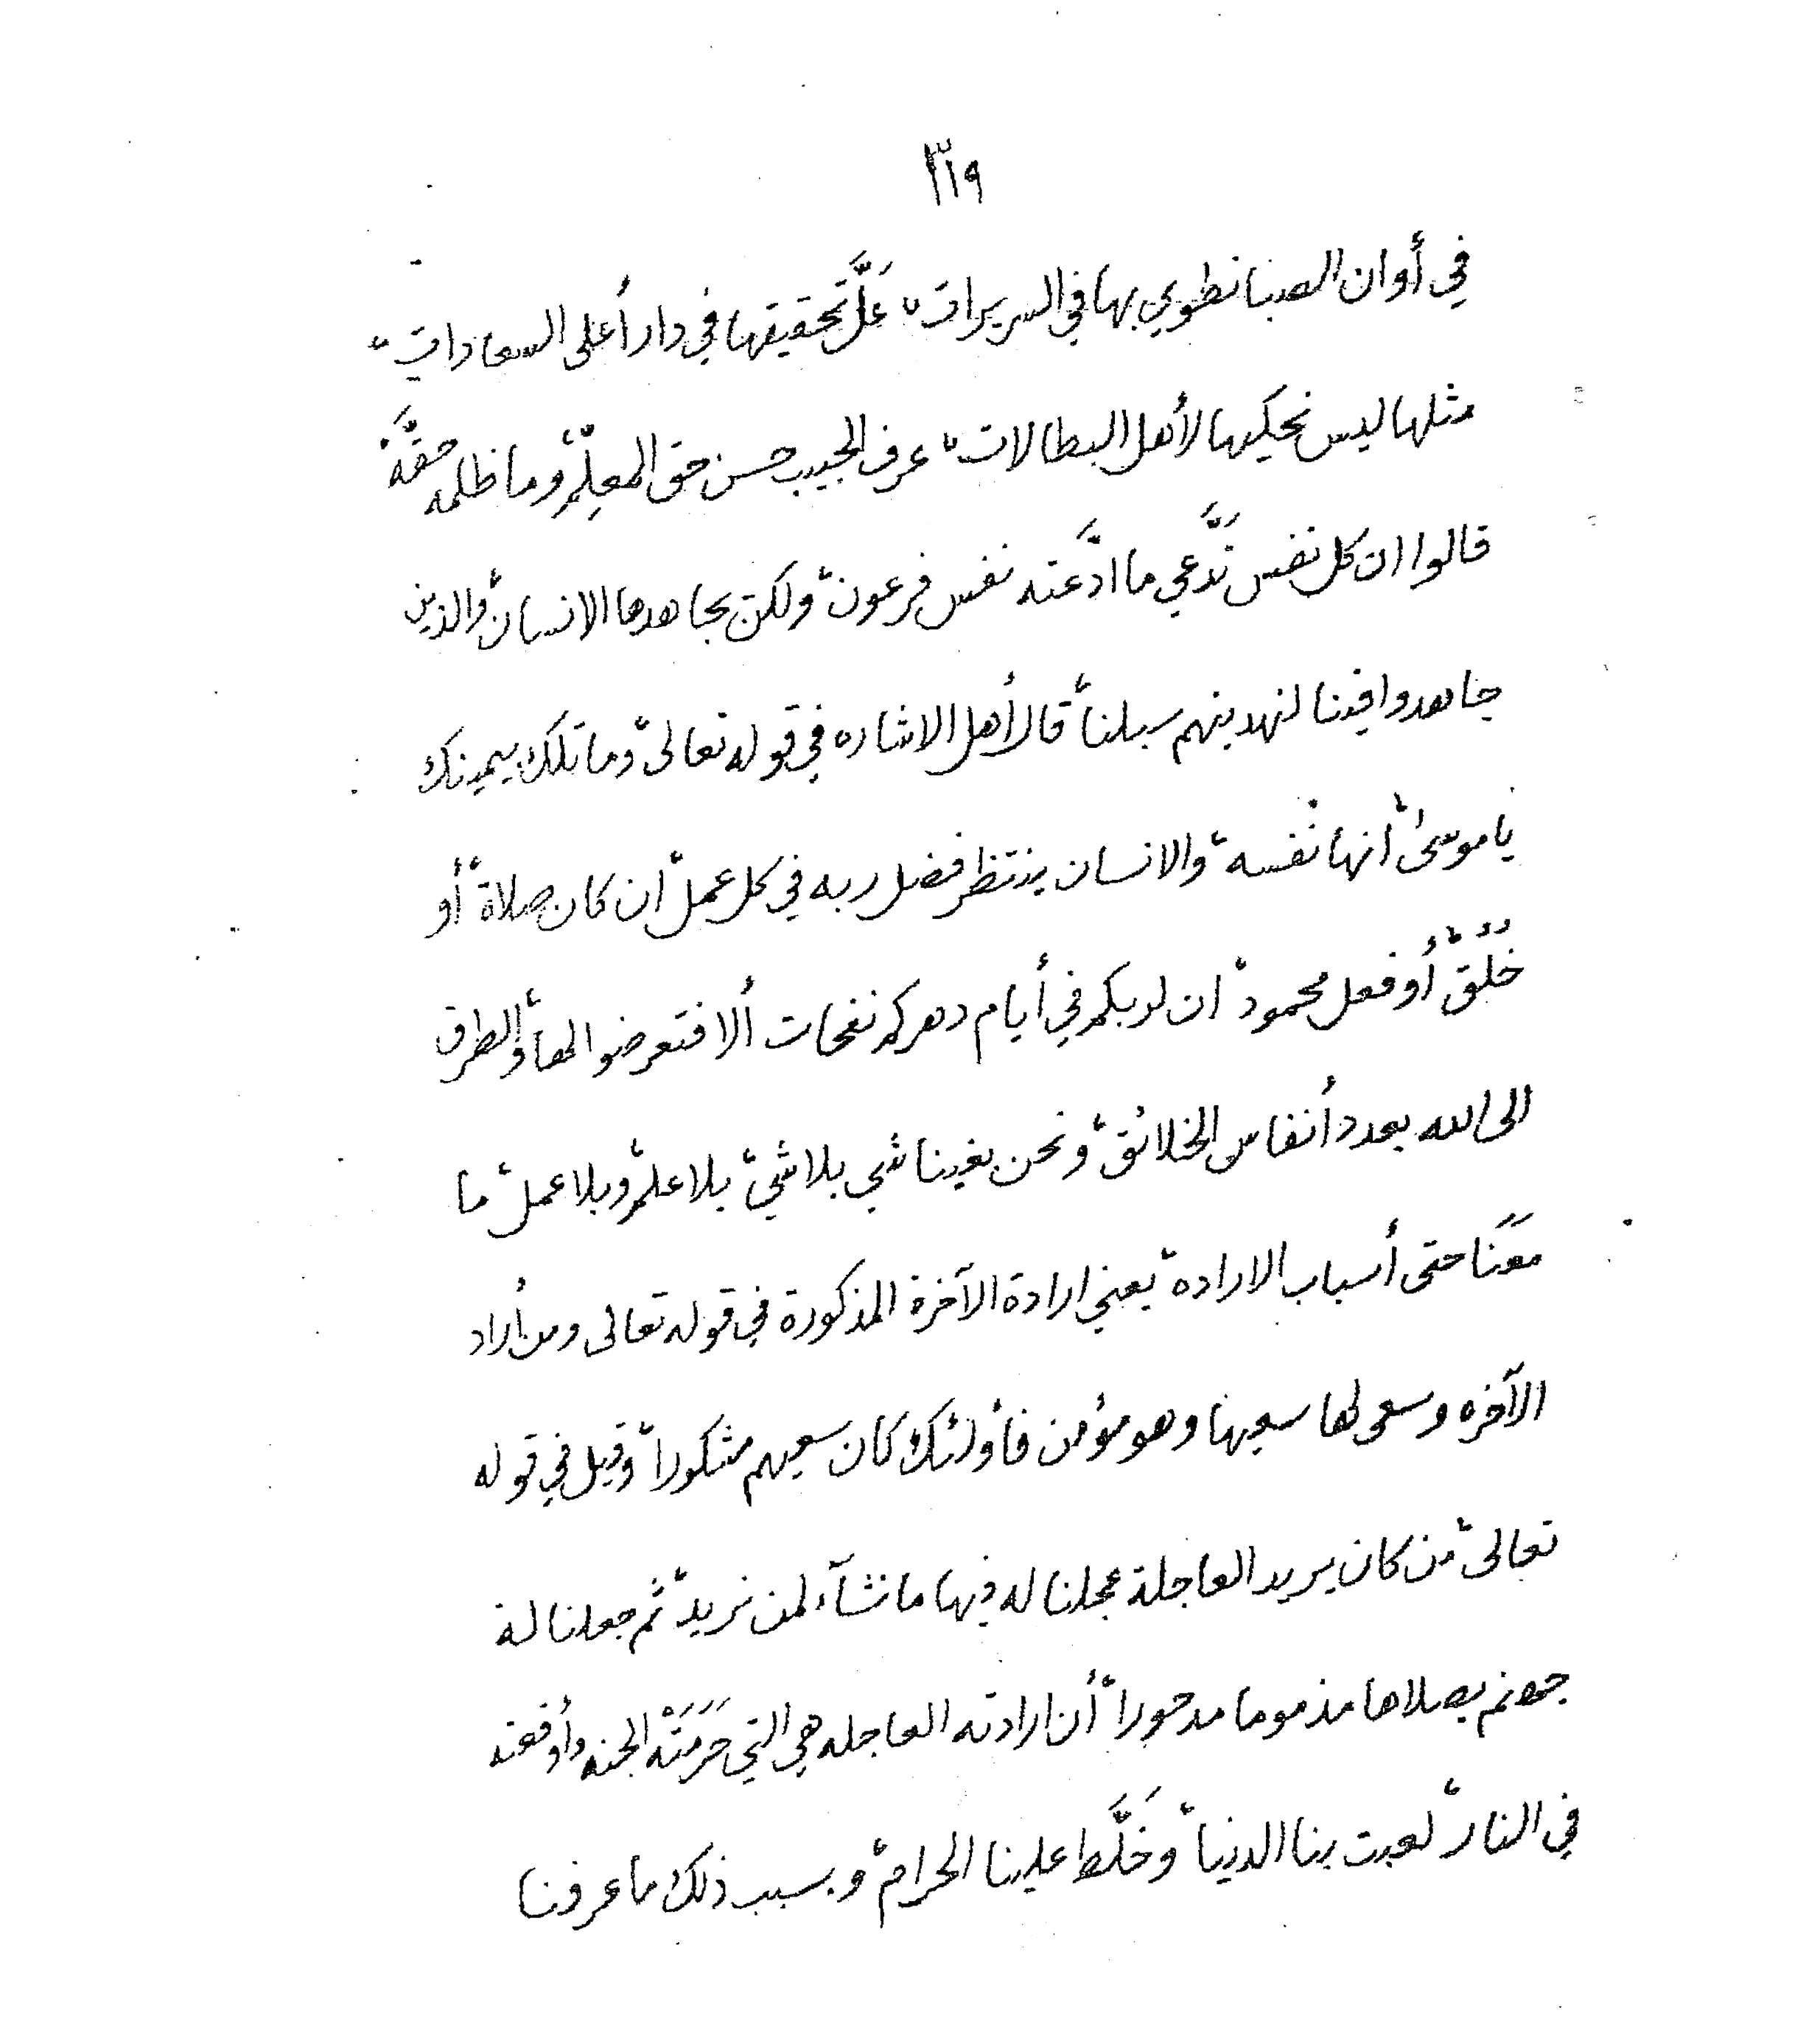 ٣١٩
في أوان الصبا نطوي بها في السريرات، عَلَّ تحقيقها في دار أعلى السعادات،
مثلها ليس نحكيها لأهل البطالات، عرف الحبيب حسن حق المعلِّم، وما ظلمه حقَّه
قالوا ان كل نفس تَدَّعي ما ادَّعته نفس فرعون، ولكن يجاهدها الانسان، والذين
جاهدوا فينا لنهدينهم سبلنا، قال أهل الاشاره في قوله تعالى، وما تلك بيمينك
يا موسى، انها نفسه، والانسان ينتظر فضل ربه في كل عمل، ان كان صلاة، أو
خُلُق، أو فعل محمود، ان لربكم في أيام دهركم نفحات ألا فتعرضوا لها، والطرق
الى الله بعدد أنفاس الخلائق، ونحن بغينا شي بلا شي، بلا علم، وبلا عمل، ما
مَعَنا حتى أسباب الاراده، يعني ارادة الآخرة المذكورة في قوله تعالى ومن أراد
الآخره وسعى لها سعيها وهو مؤمن فأولئك كان سعيهم مشكورا، وقيل في قوله
تعالى، من كان يريد العاجلة عجلنا له فيها ما نشآء لمن نريد، ثم جعلنا له
جهنم يصلاها مذموما مدحورا، أن ارادته العاجله هي التي حَرَمَتْه الجنه وأوقعته
في النار، لعبت بنا الدنيا، وخَلَّط علينا الحرام، وبسبب ذلك ما عرفنا